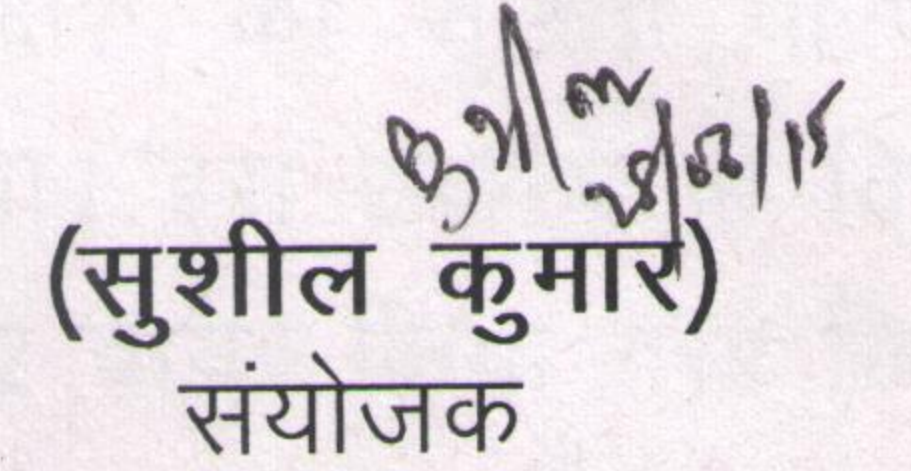 (सुशील कुमार)
संयोजक